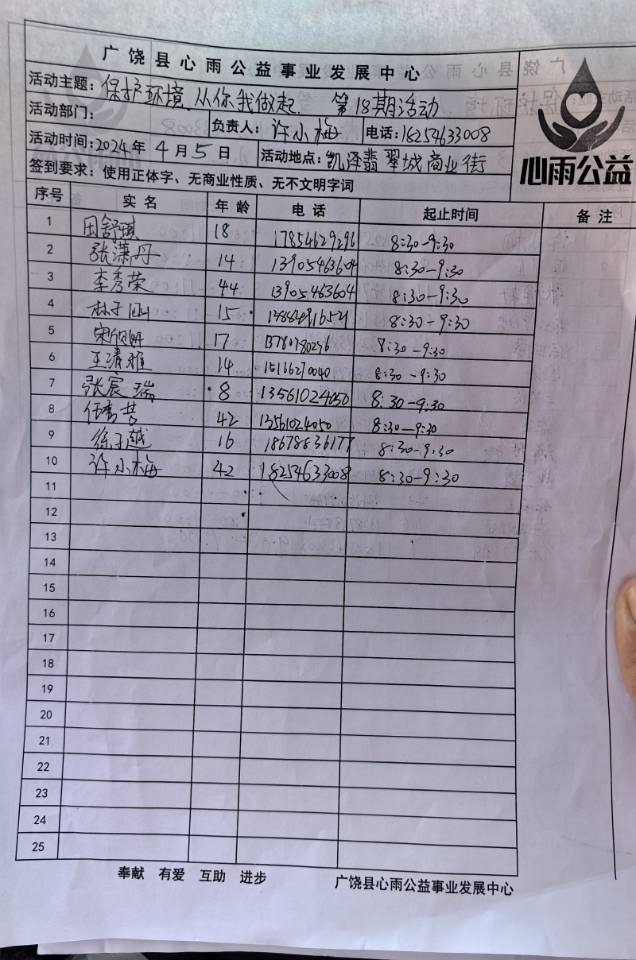 广饶县心雨公益事业发展中心
活动主题：保护环境，从你我做起. 第18期活动
活动部门： 负责人：许小梅 电话：18254633008
活动时间：2024年4月5日 活动地点：凯泽翡翠城商业街
签到要求：使用正体字、无商业性质、无不文明字词
心雨公益
序号 实名 年龄 电话 起止时间 备注
1 田舒斌 18 17854629296 8:30-9:30
2 张潇丹 14 13905463604 8:30-9:30
3 李秀荣 44 13905463604 8:30-9:30
4 15 8:30-9:30
5 17 8:30-9:30
6 王清雅 14 15166270040 8:30-9:30
7 张宸瑞 8 13561024050 8:30-9:30
8 任秀芸 42 13561024050 8:30-9:30
9 徐玉越 16 18678836177 8:30-9:30
10 许小梅 42 18254633008 8:30-9:30
11
12
13
14
15
16
17
18
19
20
21
22
23
24
25
奉献 有爱 互助 进步 广饶县心雨公益事业发展中心